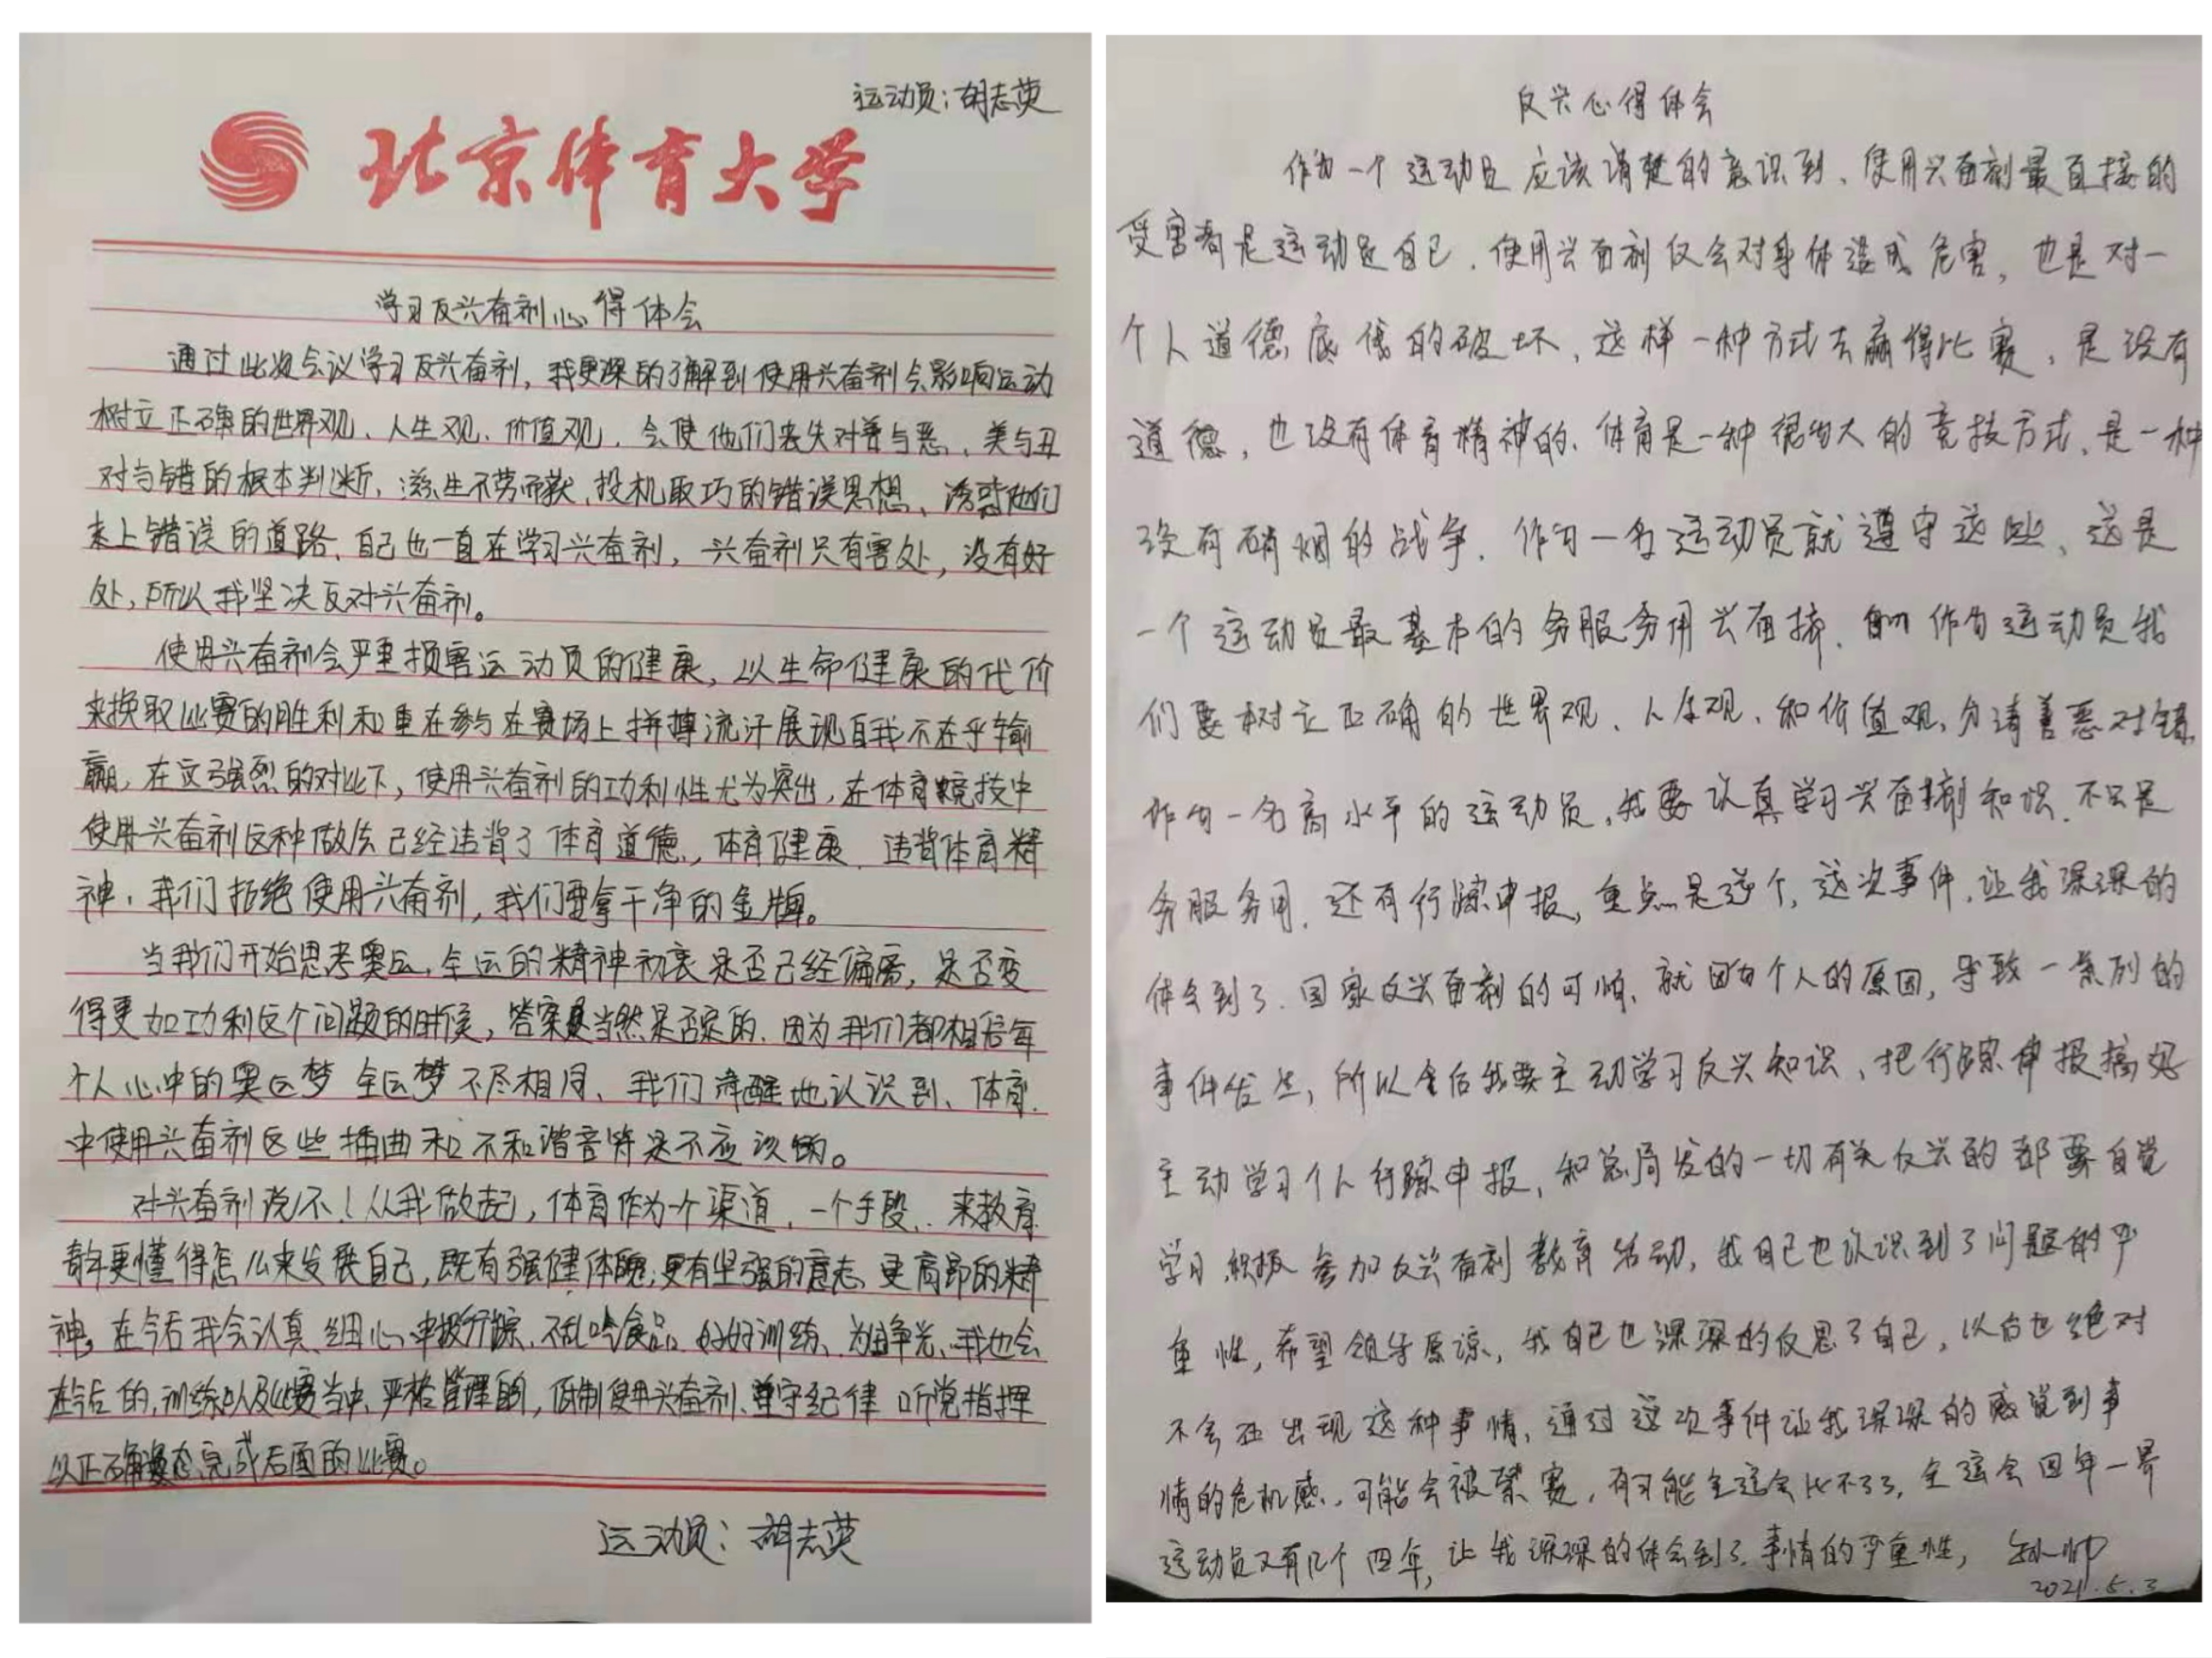 运动员:胡志英
北京体育大学
学习反兴奋剂心得体会
通过此次会议学习反兴奋剂,我更深的了解到使用兴奋剂会影响运动
树立正确的世界观、人生观、价值观,会使他们丧失对善与恶、美与丑
对与错的根本判断,滋生不劳而获、投机取巧的错误思想、诱惑他们
走上错误的道路、自己也一直在学习兴奋剂,兴奋剂只有害处,没有好
处,所以我坚决反对兴奋剂。
使用兴奋剂会严重损害运动员的健康,以生命健康的代价
来换取比赛的胜利和重在参与在赛场上拼搏流汗展现自我不在乎输
赢,在这强烈的对比下,使用兴奋剂的功利性尤为突出,在体育竞技中
使用兴奋剂这种做法已经违背了体育道德,体育健康、违背体育精
神,我们拒绝使用兴奋剂,我们要拿干净的金牌。
当我们开始思考奥运,全运的精神初衷是否已经偏离,是否变
得更加功利这个问题的时候,答案当然是否定的.因为我们都相信每
个人心中的奥运梦 全运梦不尽相同、我们清醒地认识到、体育
中使用兴奋剂这些插曲和不和谐音符是不应该的。
对兴奋剂说不!从我做起,体育作为一个渠道,一个手段,来教育
青年更懂得怎么来发展自己,既有强健体魄,更有坚强的意志、更高昂的精
神。在今后我会认真、细心申报行踪、不乱吃食品、好好训练、为争光、我也会
在今后的训练以及比赛当中、严格管理自己,抵制使用兴奋剂、遵守纪律 听党指挥
以正确姿态完成后面的比赛。
运动员:胡志英
反兴心得体会
作为一个运动员应该清楚的意识到、使用兴奋剂最直接的
受害者是运动员自己.使用兴奋剂仅会对身体造成危害,也是对一
个人道德底线的破坏、这样一种方式去赢得比赛,是没有
道德,也没有体育精神的.体育是一种很伟大的竞技方式.是一种
没有硝烟的战争.作为一名运动员就遵守这些、这是
一个运动员最基本的务服务用兴奋剂.作为运动员我
们要树立正确的世界观、人生观、和价值观,分清善恶对错.
作为一名高水平的运动员,我要认真学习兴奋剂知识.不只是
务服务用.还有行踪申报,重点是这个,这次事件,让我深深的
体会到了.国家反兴奋剂的可怕、就因为个人的原因,导致一系列的
事件发生,所以今后我要主动学习反兴知识、把行踪申报搞好
主动学习个人行踪申报,和总局发的一切有关反兴的都要自觉
学习.积极参加反兴奋剂教育活动,我自己也认识到了问题的严
重性,希望领导原谅,我自己也深深的反思了自己,以后也绝对
不会再出现这种事情,通过这次事件让我深深的感觉到事
情的危机感.可能会被禁赛,有可能全运会比不了了.全运会四年一届
运动员又有几个四年,让我深深的体会到了.事情的严重性,
2021.5.3